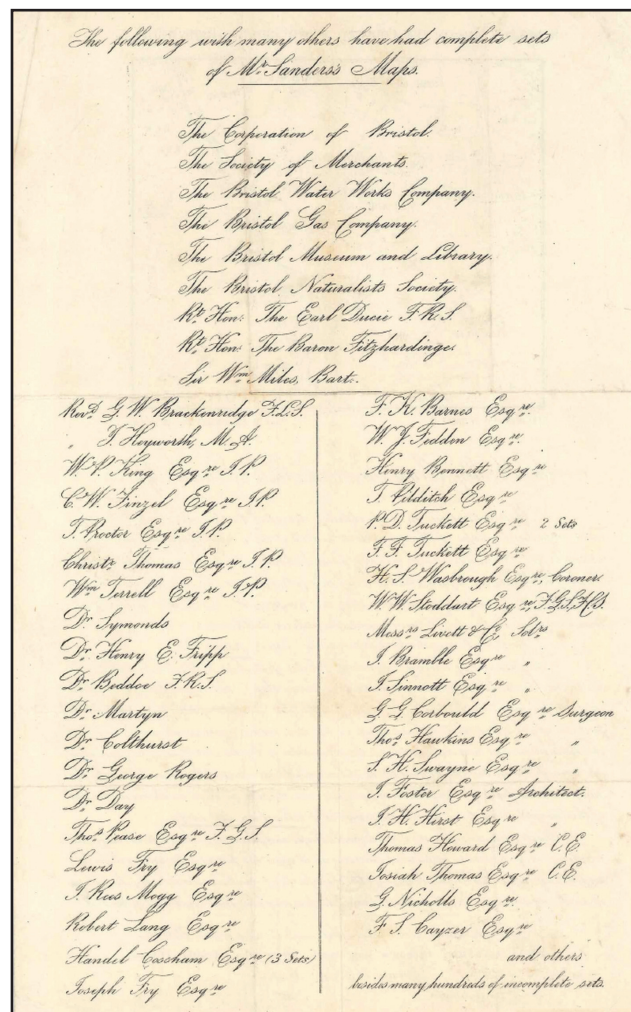 The following with many others have had complete sets
of Mr. Sanders's Maps.
The Corporation of Bristol.
The Society of Merchants.
The Bristol Water Works Company.
The Bristol Gas Company.
The Bristol Museum and Library.
The Bristol Naturalists Society.
Rt. Hon: The Earl Ducie F.R.S.
Rt. Hon: The Baron Fitzhardinge.
Sir Wm. Miles, Bart:.
Revd. G. W. Brackenridge F.L.S.
" J. Heyworth, M.A.
W. P. King Esqre J.P.
C. W. Finzel Esqre J.P.
T. Proctor Esqre J.P.
Christr. Thomas Esqre J.P.
Wm. Terrell Esqre J.P.
Dr. Symonds
Dr. Henry E. Fripp
Dr. Beddoe F.R.S.
Dr. Martyn
Dr. Colthurst
Dr. George Rogers
Dr. Day
Thos. Pease Esqre F.G.S.
Lewis Fry Esqre
J. Rees Mogg Esqre
Robert Lang Esqre
Handel Cossham Esqre (3 Sets)
Joseph Fry Esqre
F. K. Barnes Esqre
W. J. Feddon Esqre
Henry Bennett Esqre
T. Pilditch Esqre
P. D. Tuckett Esqre 2 Sets
F. F. Tuckett Esqre
H. S. Wasbrough Esqre, Coroner
W. W. Stoddart Esqre, F.G.S., F.C.S.
Messrs Livett & Co. Solrs
J. Bramble Esqre "
J. Sinnott Esqre "
G. G. Corbould Esqre Surgeon
Thos. Hawkins Esqre "
S. H. Swayne Esqre "
J. Foster Esqre Architect.
J. H. Hirst Esqre "
Thomas Howard Esqre C.E.
Josiah Thomas Esqre C.E.
G. Nicholls Esqre
F. S. Cayzer Esqre
and others
besides many hundreds of incomplete sets.